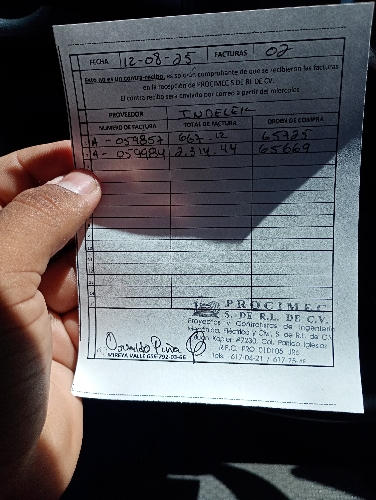 FECHA 12-08-25 FACTURAS 02
Este no es un contra-recibo, es solo un comprobante de que se recibieron las facturas
en la recepcion de PROCIMEC S DE RL DE CV.
El contra recibo sera enviado por correo a partir del miercoles
PROVEEDOR INDELEK
NUMERO DE FACTURA TOTAL DE FACTURA ORDEN DE COMPRA
1 A - 059857 667.12 65725
2 A - 059984 2,314.44 65669
PROCIMEC
S. DE R.L. DE C.V.
Proyectos y Contratistas de Ingeniería
Mecánica, Eléctrica y Civil, S. de R.L. de C.V.
Kepler #9230, Col. Partido Iglesias
R.F.C. PRO 010105 JR6
Tels. 617-06-21 / 617-75-
Osvaldo Piña
MIREYA VALLE 656-792-03-66